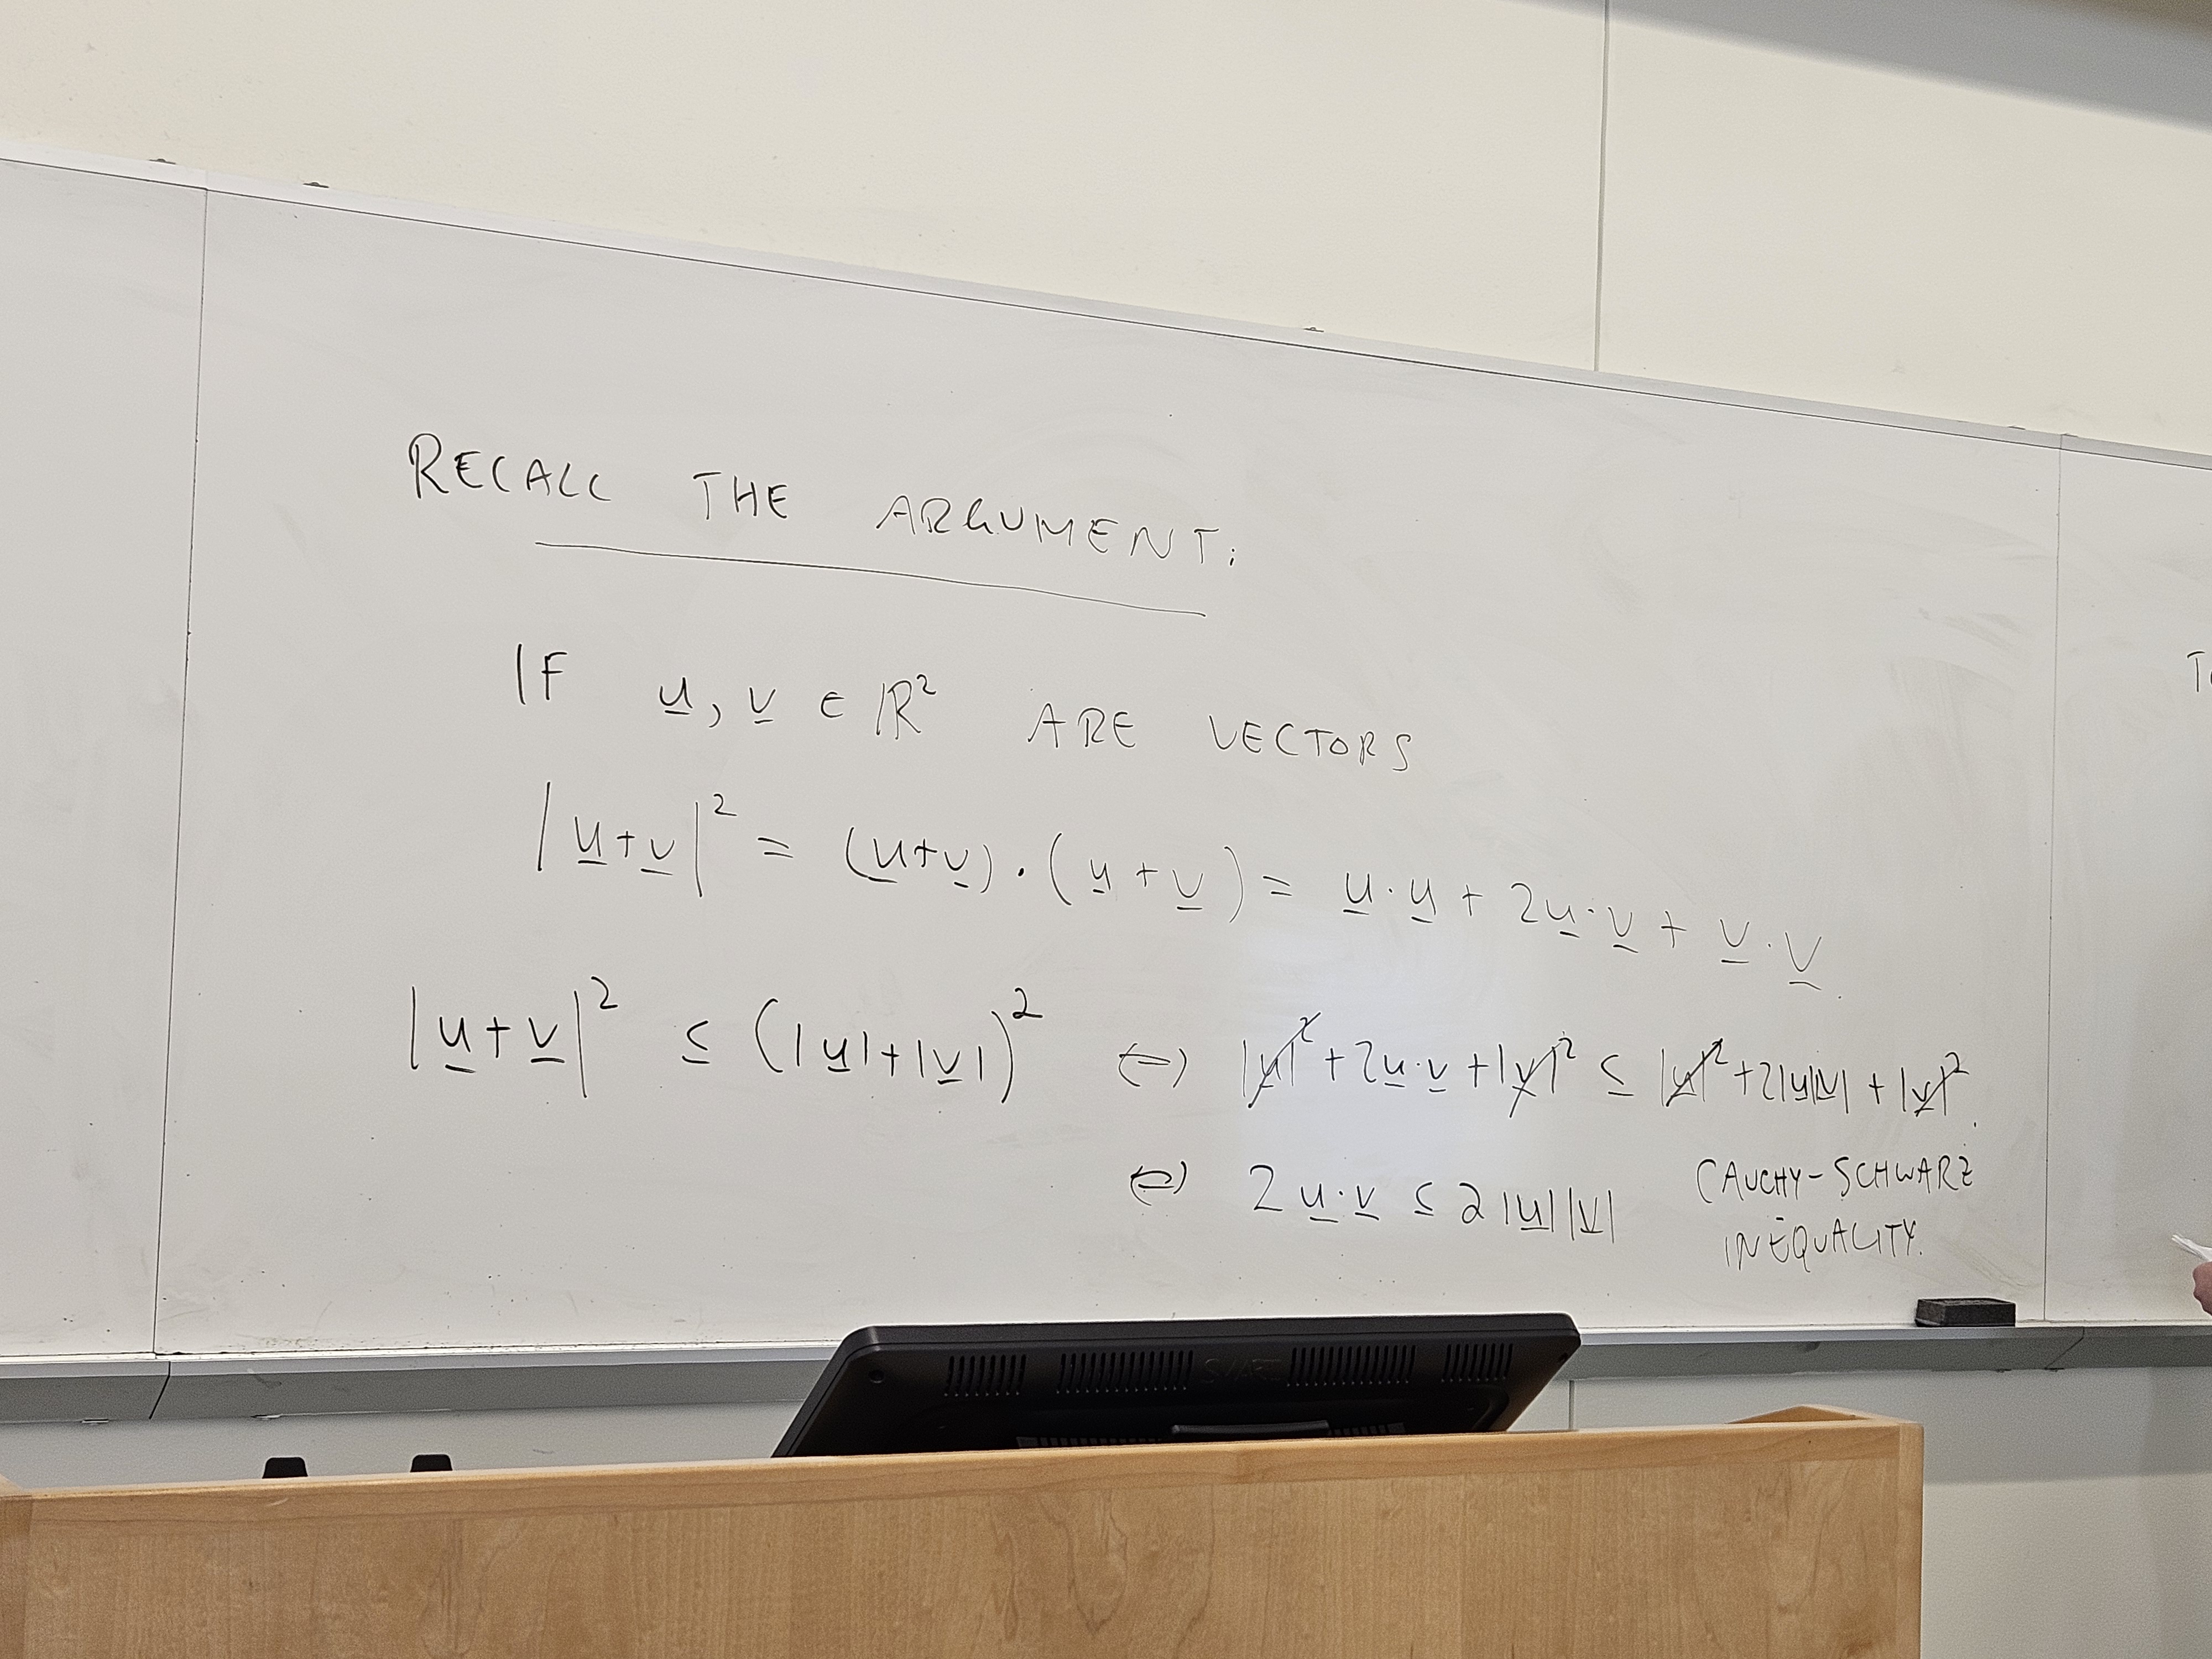 RECALL THE ARGUMENT:
IF u, v ∈ ℝ² ARE VECTORS
|u+v|² = (u+v)·(u+v) = u·u + 2u·v + v·v
|u+v|² ≤ (|u|+|v|)² ⟺ |u|² + 2u·v + |v|² ≤ |u|² + 2|u||v| + |v|².
⟺ 2u·v ≤ 2|u||v|
CAUCHY-SCHWARZ
INEQUALITY.
SMART